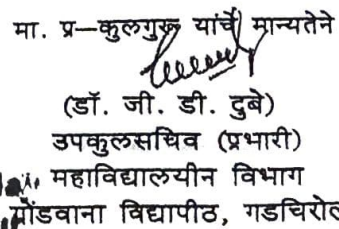 मा. प्र—कुलगुरू यांचे मान्यतेने
(डॉ. जी. डी. दुबे)
उपकुलसचिव (प्रभारी)
महाविद्यालयीन विभाग
गोंडवाना विद्यापीठ, गडचिरोल